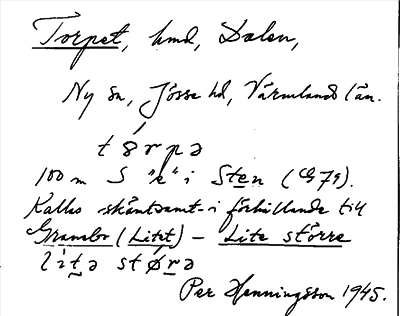 Torpet, hmd, Dalen,
Ny sn, Jösse hd, Värmlands län.
tó̤rpə
100 m S "e" i Sten (G79).
Kallas skämtsamt i förhållande till
Granebo (Litet) – Lite större
lítə stǿrə
Per Henningsson 1945.